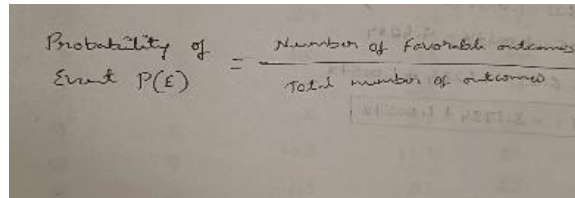 Probability of
Event P(E)
=
Number of Favorable outcomes
Total number of outcomes